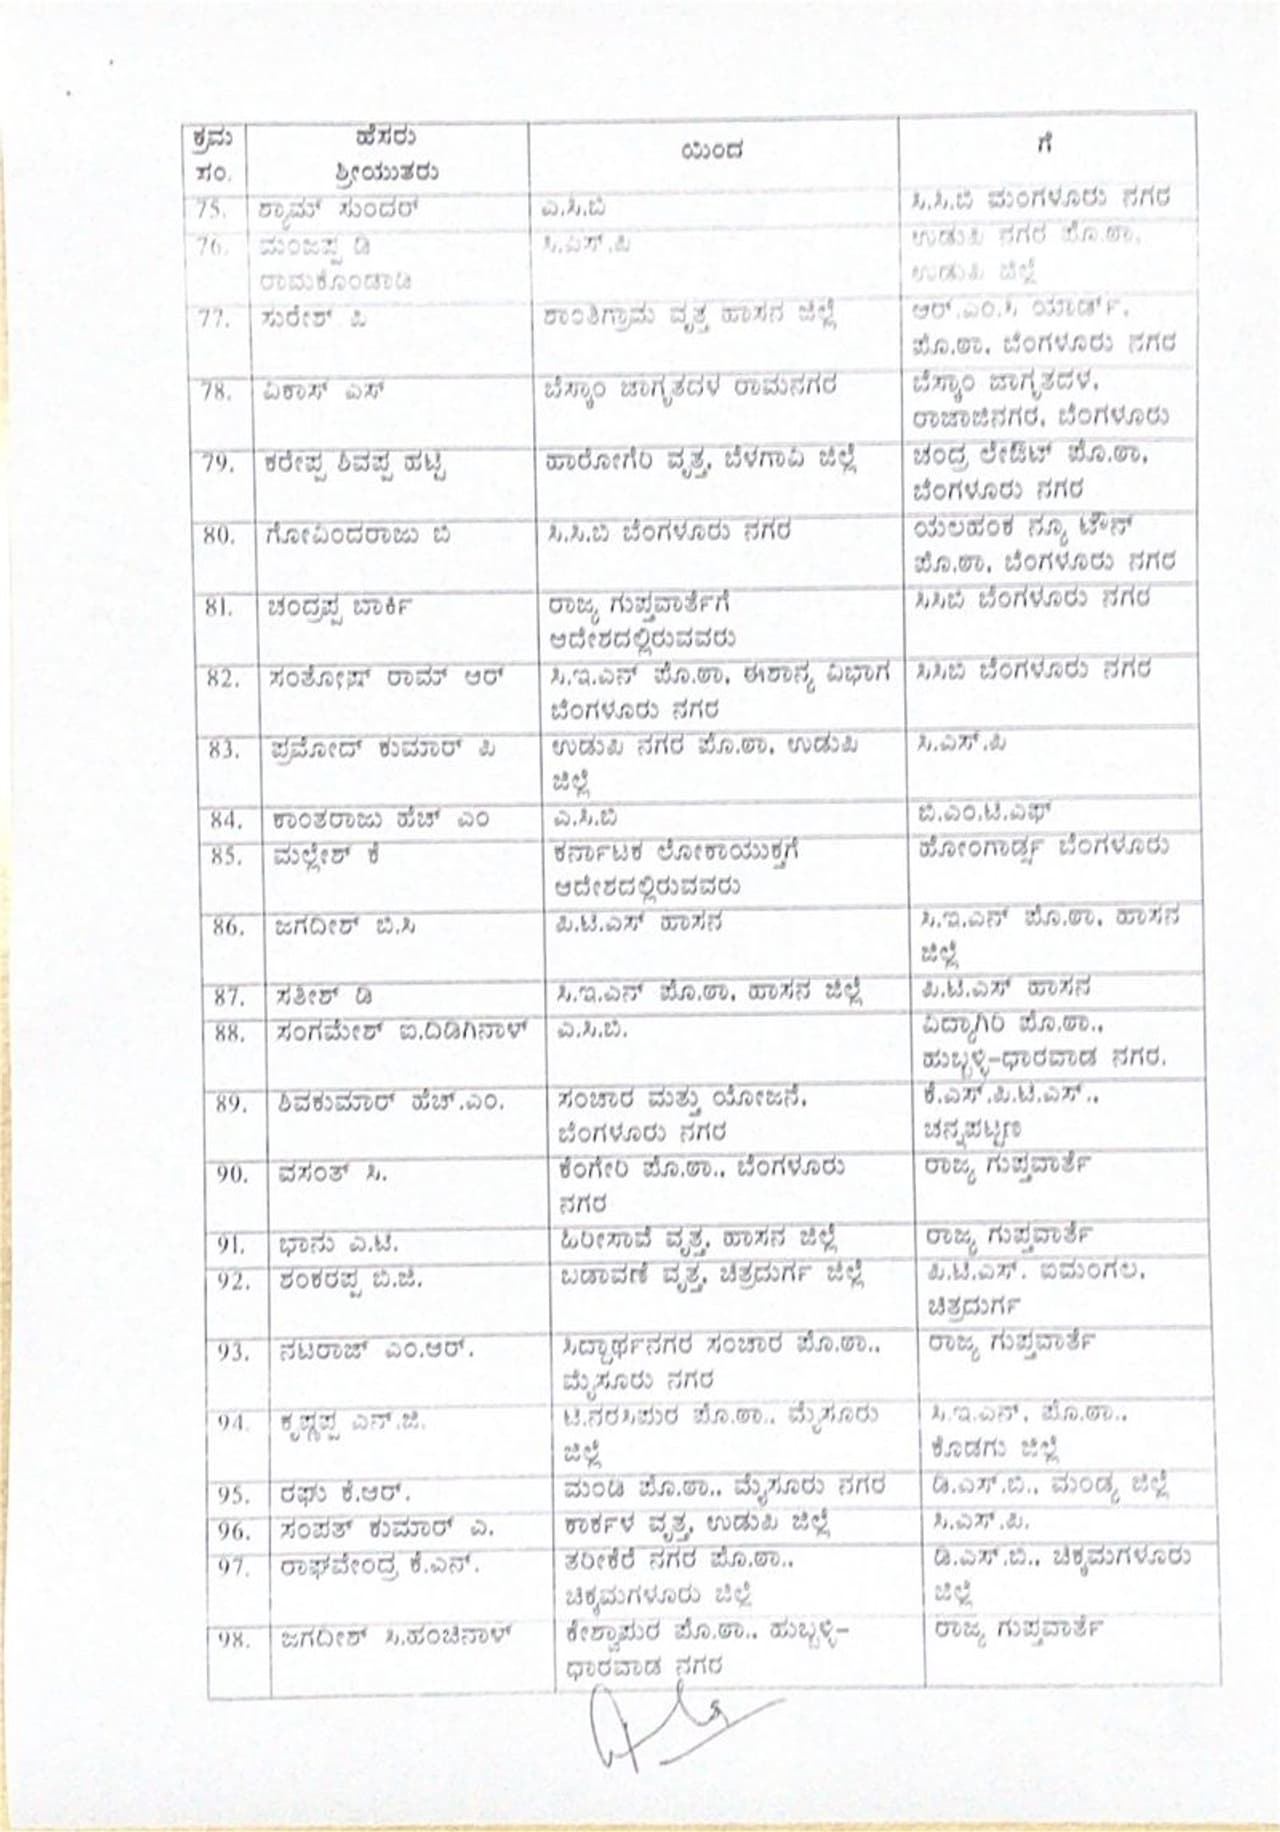 ಕ್ರಮ ಸಂ. ಹೆಸರು ಶ್ರೀಯುತರು ಯಿಂದ ಗೆ
75. ಶ್ಯಾಮ್ ಸುಂದರ್ ಎ.ಸಿ.ಬಿ ಸಿ.ಸಿ.ಬಿ ಮಂಗಳೂರು ನಗರ
76. ಮಂಜಪ್ಪ ಡಿ ಸಿ.ಎಸ್.ಪಿ ಉಡುಪಿ ನಗರ ಪೊ.ಠಾ,
ರಾಮಕೊಂಡಾಡಿ ಉಡುಪಿ ಜಿಲ್ಲೆ
77. ಸುರೇಶ್ ಪಿ ಶಾಂತಿಗ್ರಾಮ ವೃತ್ತ ಹಾಸನ ಜಿಲ್ಲೆ ಆರ್.ಎಂ.ಸಿ ಯಾರ್ಡ್,
ಪೊ.ಠಾ, ಬೆಂಗಳೂರು ನಗರ
78. ವಿಕಾಸ್ ಎಸ್ ಬೆಸ್ಕಾಂ ಜಾಗೃತದಳ ರಾಮನಗರ ಬೆಸ್ಕಾಂ ಜಾಗೃತದಳ,
ರಾಜಾಜಿನಗರ, ಬೆಂಗಳೂರು
79. ಕರೇಪ್ಪ ಶಿವಪ್ಪ ಹಟ್ಟಿ ಹಾರೋಗೆರಿ ವೃತ್ತ, ಬೆಳಗಾವಿ ಜಿಲ್ಲೆ ಚಂದ್ರ ಲೇಔಟ್ ಪೊ.ಠಾ,
ಬೆಂಗಳೂರು ನಗರ
80. ಗೋವಿಂದರಾಜು ಬಿ ಸಿ.ಸಿ.ಬಿ ಬೆಂಗಳೂರು ನಗರ ಯಲಹಂಕ ನ್ಯೂ ಟೌನ್
ಪೊ.ಠಾ, ಬೆಂಗಳೂರು ನಗರ
81. ಚಂದ್ರಪ್ಪ ಬಾರ್ಕಿ ರಾಜ್ಯ ಗುಪ್ತವಾರ್ತೆಗೆ ಸಿಸಿಬಿ ಬೆಂಗಳೂರು ನಗರ
ಆದೇಶದಲ್ಲಿರುವವರು
82. ಸಂತೋಷ್ ರಾಮ್ ಆರ್ ಸಿ.ಇ.ಎನ್ ಪೊ.ಠಾ, ಈಶಾನ್ಯ ವಿಭಾಗ ಸಿಸಿಬಿ ಬೆಂಗಳೂರು ನಗರ
ಬೆಂಗಳೂರು ನಗರ
83. ಪ್ರಮೋದ್ ಕುಮಾರ್ ಪಿ ಉಡುಪಿ ನಗರ ಪೊ.ಠಾ, ಉಡುಪಿ ಸಿ.ಎಸ್.ಪಿ
ಜಿಲ್ಲೆ
84. ಕಾಂತರಾಜು ಹೆಚ್ ಎಂ ಎ.ಸಿ.ಬಿ ಬಿ.ಎಂ.ಟಿ.ಎಫ್
85. ಮಲ್ಲೇಶ್ ಕೆ ಕರ್ನಾಟಕ ಲೋಕಾಯುಕ್ತಗೆ ಹೋಂಗಾರ್ಡ್ಸ್ ಬೆಂಗಳೂರು
ಆದೇಶದಲ್ಲಿರುವವರು
86. ಜಗದೀಶ್ ಬಿ.ಸಿ ಪಿ.ಟಿ.ಎಸ್ ಹಾಸನ ಸಿ.ಇ.ಎನ್ ಪೊ.ಠಾ, ಹಾಸನ
ಜಿಲ್ಲೆ
87. ಸತೀಶ್ ಡಿ ಸಿ.ಇ.ಎನ್ ಪೊ.ಠಾ, ಹಾಸನ ಜಿಲ್ಲೆ ಪಿ.ಟಿ.ಎಸ್ ಹಾಸನ
88. ಸಂಗಮೇಶ್ ಐ.ದಿಡಿಗಿನಾಳ್ ಎ.ಸಿ.ಬಿ. ವಿದ್ಯಾಗಿರಿ ಪೊ.ಠಾ.,
ಹುಬ್ಬಳ್ಳಿ-ಧಾರವಾಡ ನಗರ.
89. ಶಿವಕುಮಾರ್ ಹೆಚ್.ಎಂ. ಸಂಚಾರ ಮತ್ತು ಯೋಜನೆ, ಕೆ.ಎಸ್.ಪಿ.ಟಿ.ಎಸ್.,
ಬೆಂಗಳೂರು ನಗರ ಚನ್ನಪಟ್ಟಣ
90. ವಸಂತ್ ಸಿ. ಕೆಂಗೇರಿ ಪೊ.ಠಾ., ಬೆಂಗಳೂರು ರಾಜ್ಯ ಗುಪ್ತವಾರ್ತೆ
ನಗರ
91. ಭಾನು ಎ.ಟಿ. ಹಿರೀಸಾವೆ ವೃತ್ತ, ಹಾಸನ ಜಿಲ್ಲೆ ರಾಜ್ಯ ಗುಪ್ತವಾರ್ತೆ
92. ಶಂಕರಪ್ಪ ಬಿ.ಜಿ. ಬಡಾವಣೆ ವೃತ್ತ, ಚಿತ್ರದುರ್ಗ ಜಿಲ್ಲೆ ಪಿ.ಟಿ.ಎಸ್. ಐಮಂಗಲ,
ಚಿತ್ರದುರ್ಗ
93. ನಟರಾಜ್ ಎಂ.ಆರ್. ಸಿದ್ಧಾರ್ಥನಗರ ಸಂಚಾರ ಪೊ.ಠಾ., ರಾಜ್ಯ ಗುಪ್ತವಾರ್ತೆ
ಮೈಸೂರು ನಗರ
94. ಕೃಷ್ಣಪ್ಪ ಎನ್.ಜಿ. ಟಿ.ನರಸಿಪುರ ಪೊ.ಠಾ., ಮೈಸೂರು ಸಿ.ಇ.ಎನ್. ಪೊ.ಠಾ.,
ಜಿಲ್ಲೆ ಕೊಡಗು ಜಿಲ್ಲೆ
95. ರಘು ಕೆ.ಆರ್. ಮಂಡಿ ಪೊ.ಠಾ., ಮೈಸೂರು ನಗರ ಡಿ.ಎಸ್.ಬಿ., ಮಂಡ್ಯ ಜಿಲ್ಲೆ
96. ಸಂಪತ್ ಕುಮಾರ್ ಎ. ಕಾರ್ಕಳ ವೃತ್ತ, ಉಡುಪಿ ಜಿಲ್ಲೆ ಸಿ.ಎಸ್.ಪಿ.
97. ರಾಘವೇಂದ್ರ ಕೆ.ಎನ್. ತರೀಕೆರೆ ನಗರ ಪೊ.ಠಾ., ಡಿ.ಎಸ್.ಬಿ., ಚಿಕ್ಕಮಗಳೂರು
ಚಿಕ್ಕಮಗಳೂರು ಜಿಲ್ಲೆ ಜಿಲ್ಲೆ
98. ಜಗದೀಶ್ ಸಿ.ಹಂಚಿನಾಳ್ ಕೇಶ್ವಾಪುರ ಪೊ.ಠಾ., ಹುಬ್ಬಳ್ಳಿ- ರಾಜ್ಯ ಗುಪ್ತವಾರ್ತೆ
ಧಾರವಾಡ ನಗರ